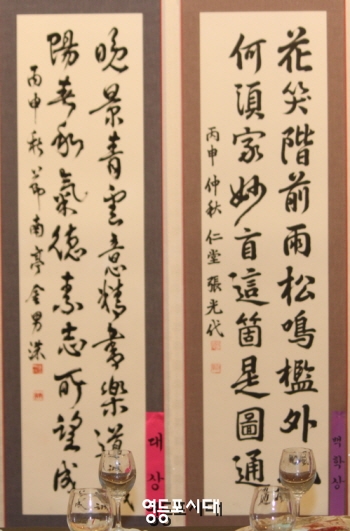 花笑階前雨松鳴檻外
何須窮妙旨這箇是圓通
丙申仲秋仁堂張光代
晚景青雲意精華樂道
陽春和氣德素志所望成
丙申秋節南亭金男洙
대상
영등포시대